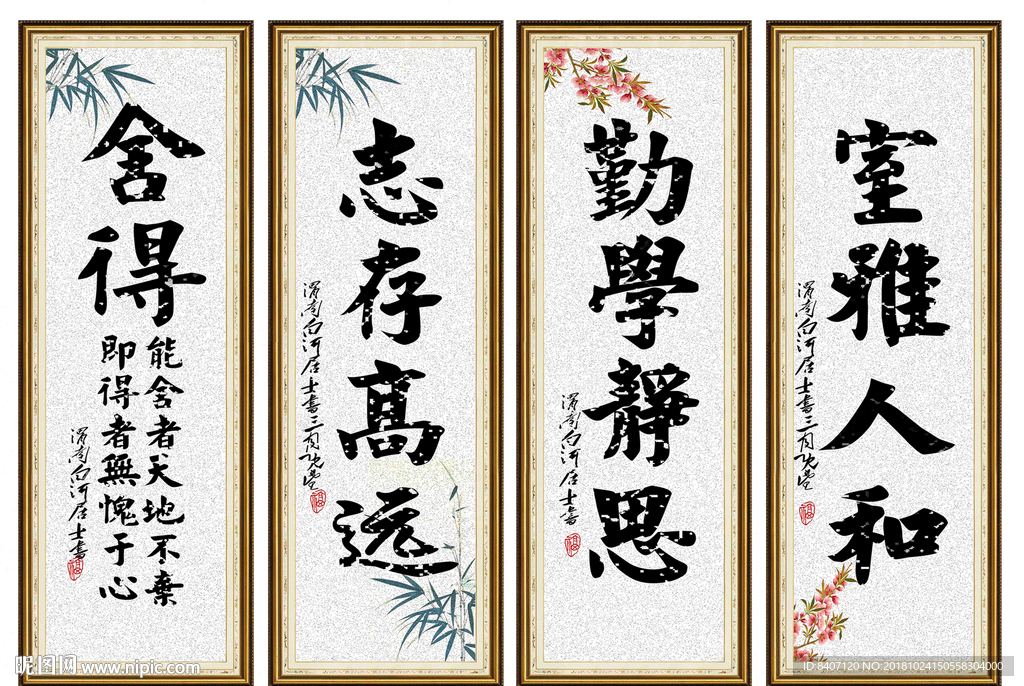 舍得
能舍者天地不棄
即得者無愧于心
渭南白河居士書
福
志存高远
渭南白河居士書三月
福
勤學靜思
渭南白河居士書
福
室雅人和
渭南白河居士書三月
福
昵图网 www.nipic.com
ID:8407120 NO:20181024150558304000